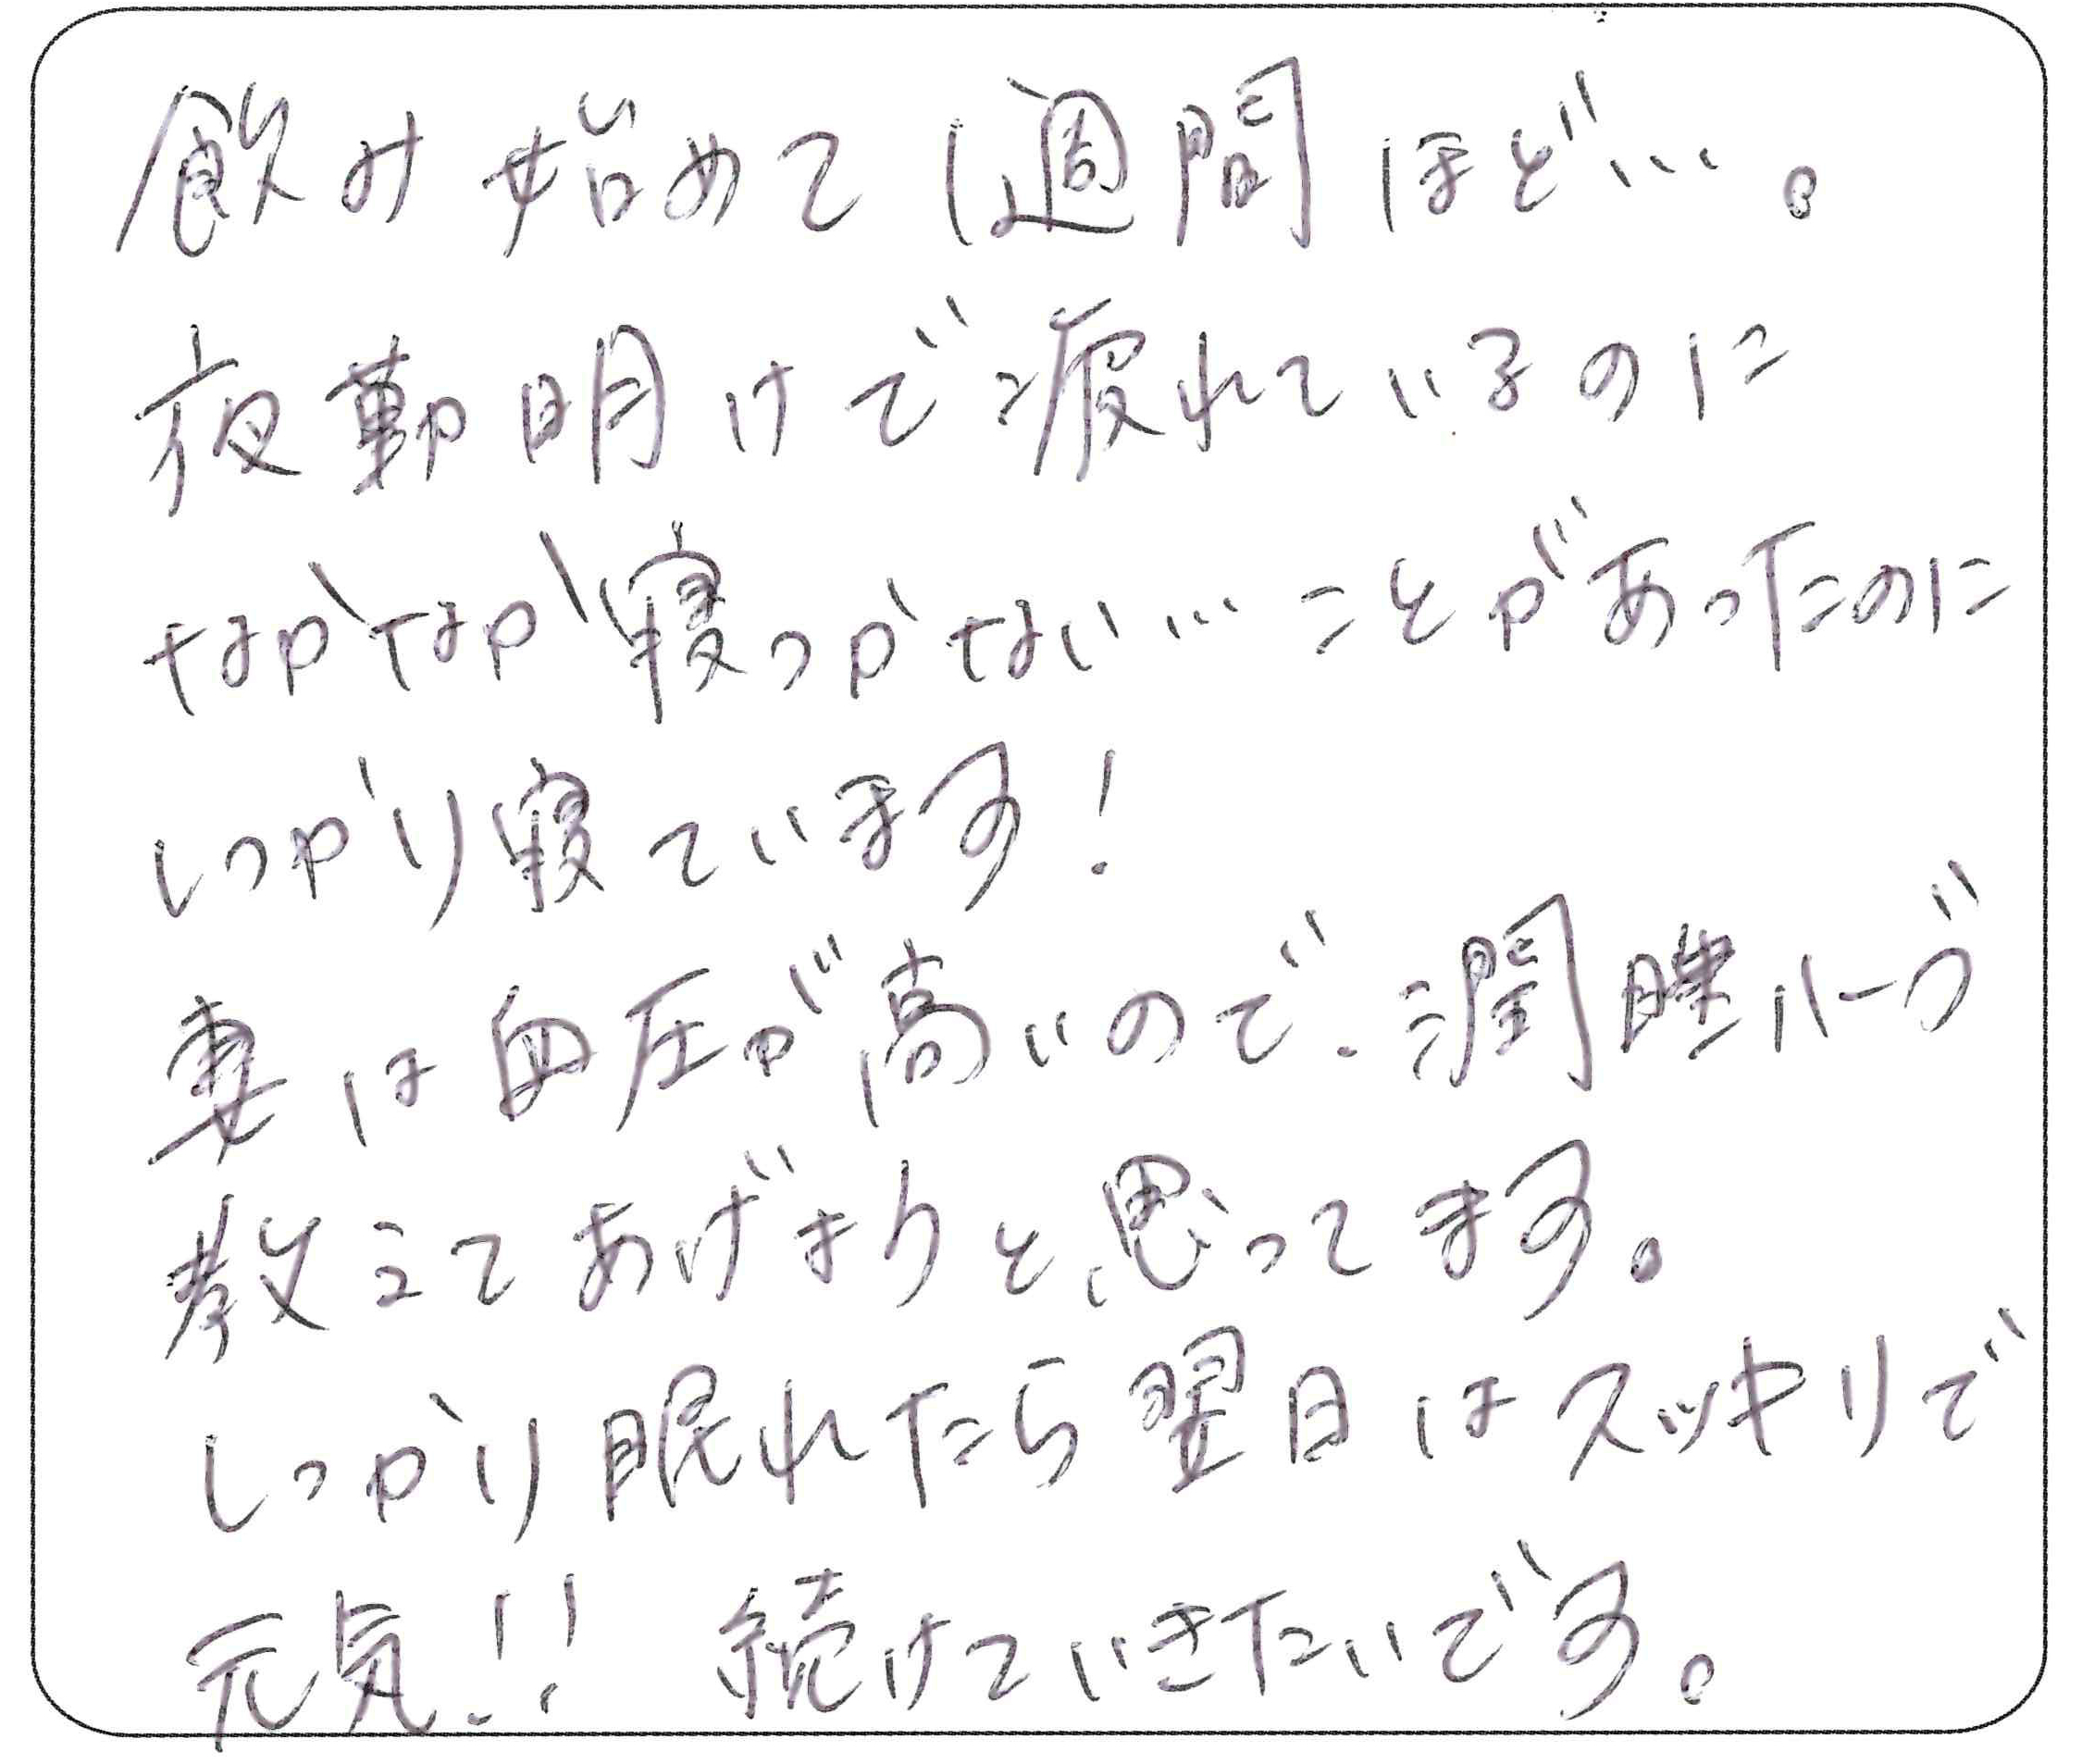 飲み始めて1週間ほど…。
夜勤明けで疲れているのに
なかなか寝つかない…ことがあったのに
しっかり寝ています!
妻は血圧が高いので、潤睡ハーブ
教えてあげようと思ってます。
しっかり眠れたら翌日はスッキリで
元気!! 続けていきたいです。